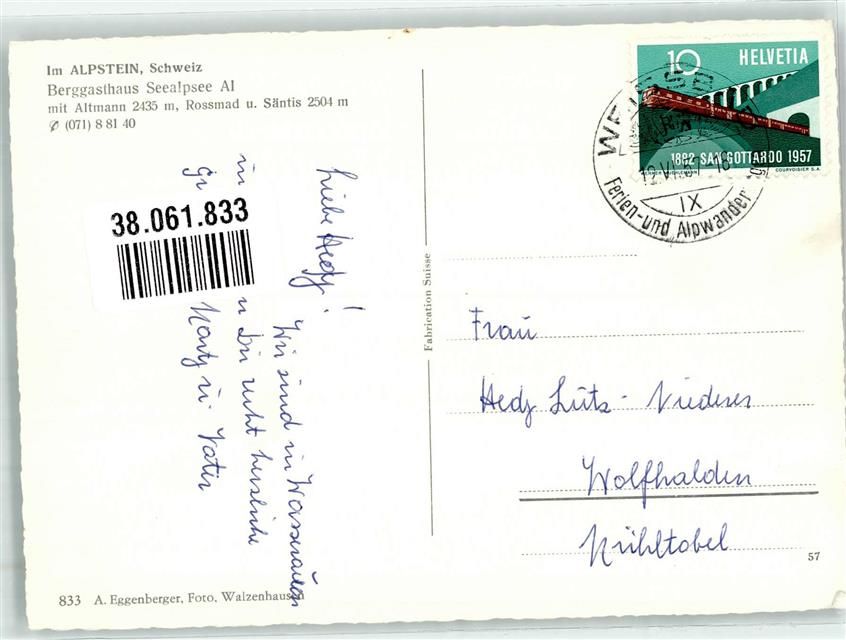 Im ALPSTEIN, Schweiz
Berggasthaus Seealpsee AI
mit Altmann 2435 m, Rossmad u. Säntis 2504 m
✆ (071) 8 81 40
38.061.833
Liebe Hedy!
Wir sind in Wasserauen
in Dir recht herzliche
Gr Vater
Fabrication Suisse
10 HELVETIA
1882 SAN GOTTARDO 1957
COURVOISIER S.A.
18
IX
Ferien- und Alpwander
Frau
Hedy Lutz- Niederer
Wolfhalden
Mühltobel
57
833 A. Eggenberger, Foto, Walzenhausen